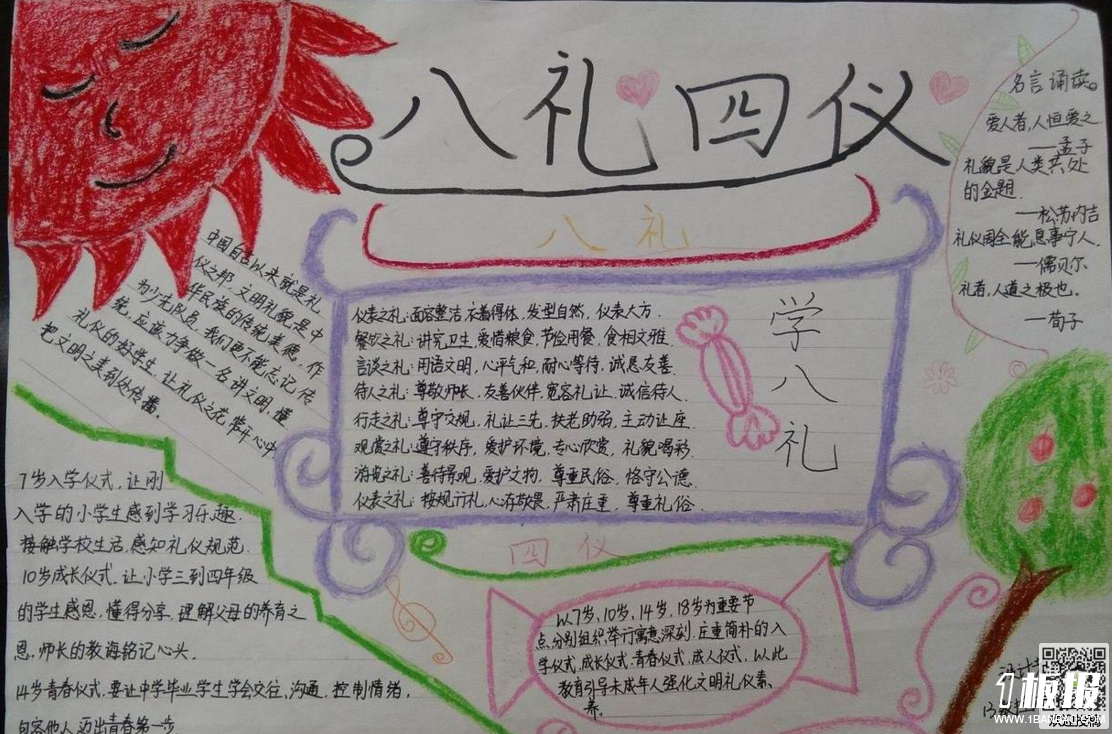 八礼四仪
名言诵读。
爱人者,人恒爱之
——孟子
礼貌是人类共处
的金题.
——松苏内吉
礼仪周全能息事宁人.
——儒贝尔
礼者,人道之极也。
——荀子
中国自己以来就是礼
仪之邦,文明礼貌是中
华民族的传统美德,作
为少先队员,我们更不能忘记传
统,应该力争做一名讲文明,懂
礼仪的好学生,让礼仪之花常开心中
把文明之美到处传播.
八礼
仪表之礼:面容整洁,衣着得体,发型自然,仪表大方.
餐饮之礼:讲究卫生,爱惜粮食,节俭用餐,食相文雅.
言谈之礼:用语文明,心平气和,耐心等待,诚恳友善.
待人之礼:尊敬师长,友善伙伴,宽容礼让,诚信待人.
行走之礼:遵守交规,礼让三先,扶老助弱,主动让座.
观赏之礼:遵守秩序,爱护环境,专心欣赏,礼貌喝彩.
游览之礼:善待景观,爱护文物,尊重民俗,恪守公德.
仪表之礼:按规行礼,心存敬畏,严肃庄重,尊重礼俗.
学八礼
7岁入学仪式,让刚
入学的小学生感到学习乐趣.
接触学校生活,感知礼仪规范.
10岁成长仪式,让小学三到四年级
的学生感恩,懂得分享,理解父母的养育之
恩,师长的教诲铭记心头.
14岁青春仪式,要让中学毕业学生学会交往,沟通,控制情绪,
包容他人,迈出青春第一步
四仪
以7岁、10岁、14岁、18岁为重要节
点,分别组织、举行寓意深刻、庄重简朴的入
学仪式,成长仪式,青春仪式,成人仪式,以此
教育引导未成年人强化文明礼仪素
养。
1板报
WWW.1BANBAO.COM
欢迎投稿